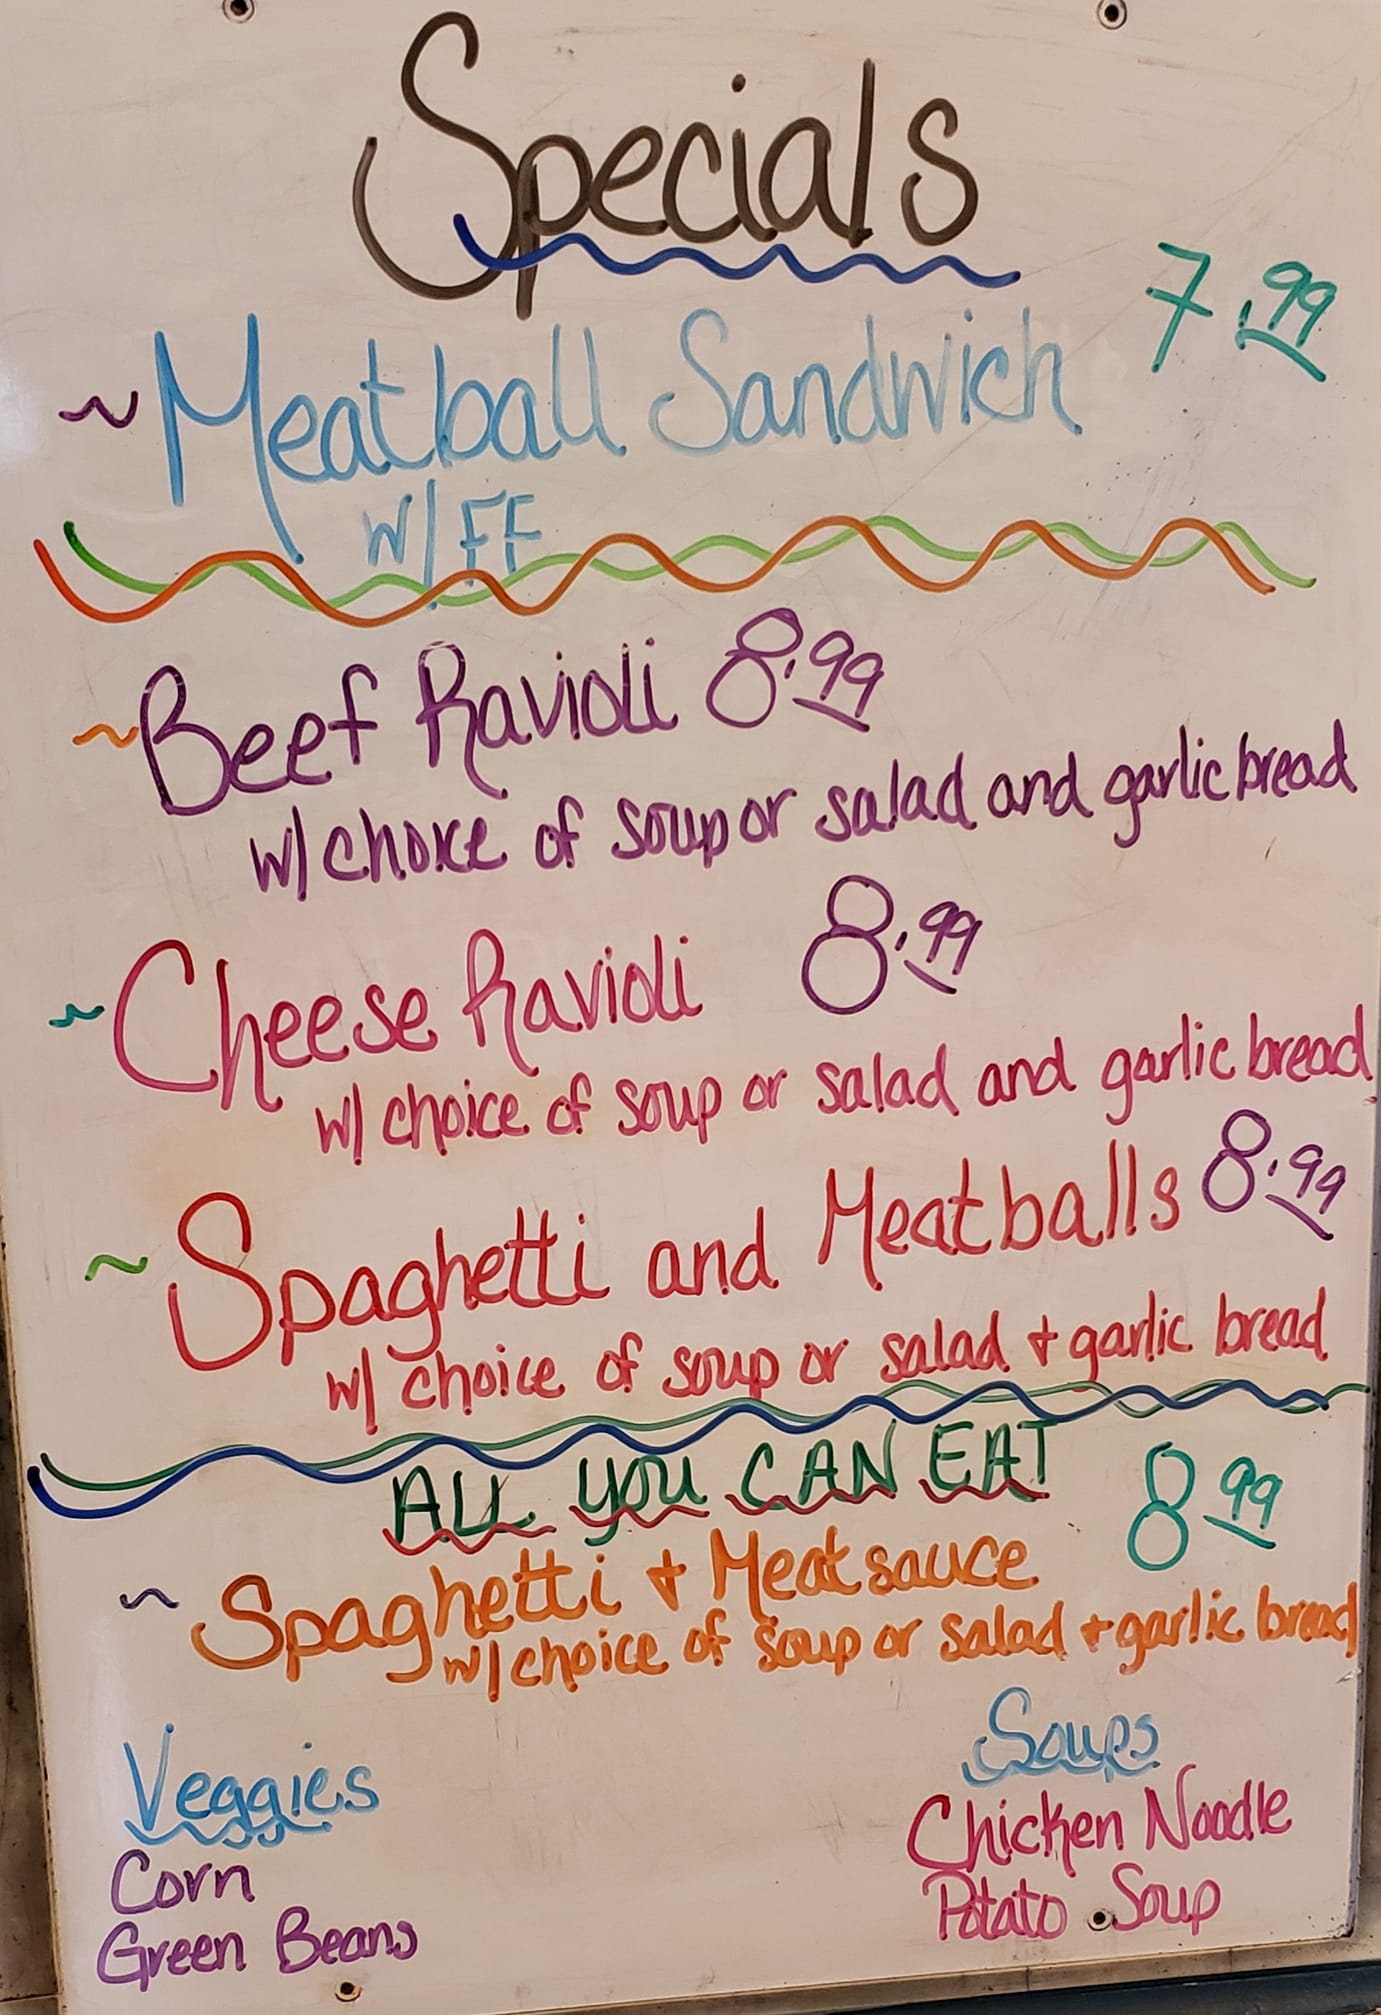 Specials
~Meatball Sandwich 7.99
W/FF
~Beef Ravioli 8.99
w/choice of soup or salad and garlic bread
~Cheese Ravioli 8.99
w/ choice of soup or salad and garlic bread
~Spaghetti and Meatballs 8.99
w/ choice of soup or salad + garlic bread
ALL YOU CAN EAT 8 99
~ Spaghetti + Meatsauce
w/choice of soup or salad + garlic bread
Veggies
Corn
Green Beans
Soups
Chicken Noodle
Potato Soup